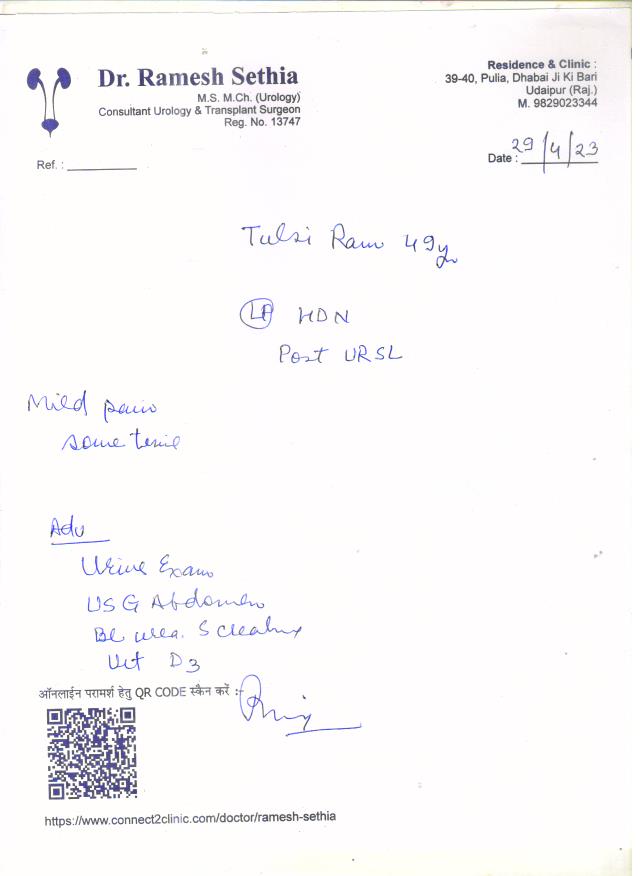 Dr. Ramesh Sethia
M.S. M.Ch. (Urology)
Consultant Urology & Transplant Surgeon
Reg. No. 13747
Residence & Clinic :
39-40, Pulia, Dhabai Ji Ki Bari
Udaipur (Raj.)
M. 9829023344
Ref. :
Date : 29/4/23
Tulsi Ram 49y
HDN
Post URSL
Mild pain
some time
Adv
Urine Exam
USG Abdomen
Bl urea. S creatinine
Vit D3
ऑनलाईन परामर्श हेतु QR CODE स्कैन करें :-
https://www.connect2clinic.com/doctor/ramesh-sethia